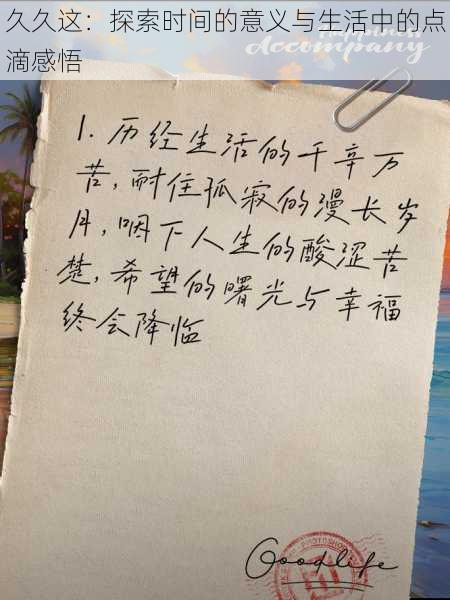 久久这：探索时间的意义与生活中的点
滴感悟
Happiness
Accompany
1. 历经生活的千辛万
苦，耐住孤寂的漫长岁
月，咽下人生的酸涩苦
楚，希望的曙光与幸福
终会降临
Goodlife